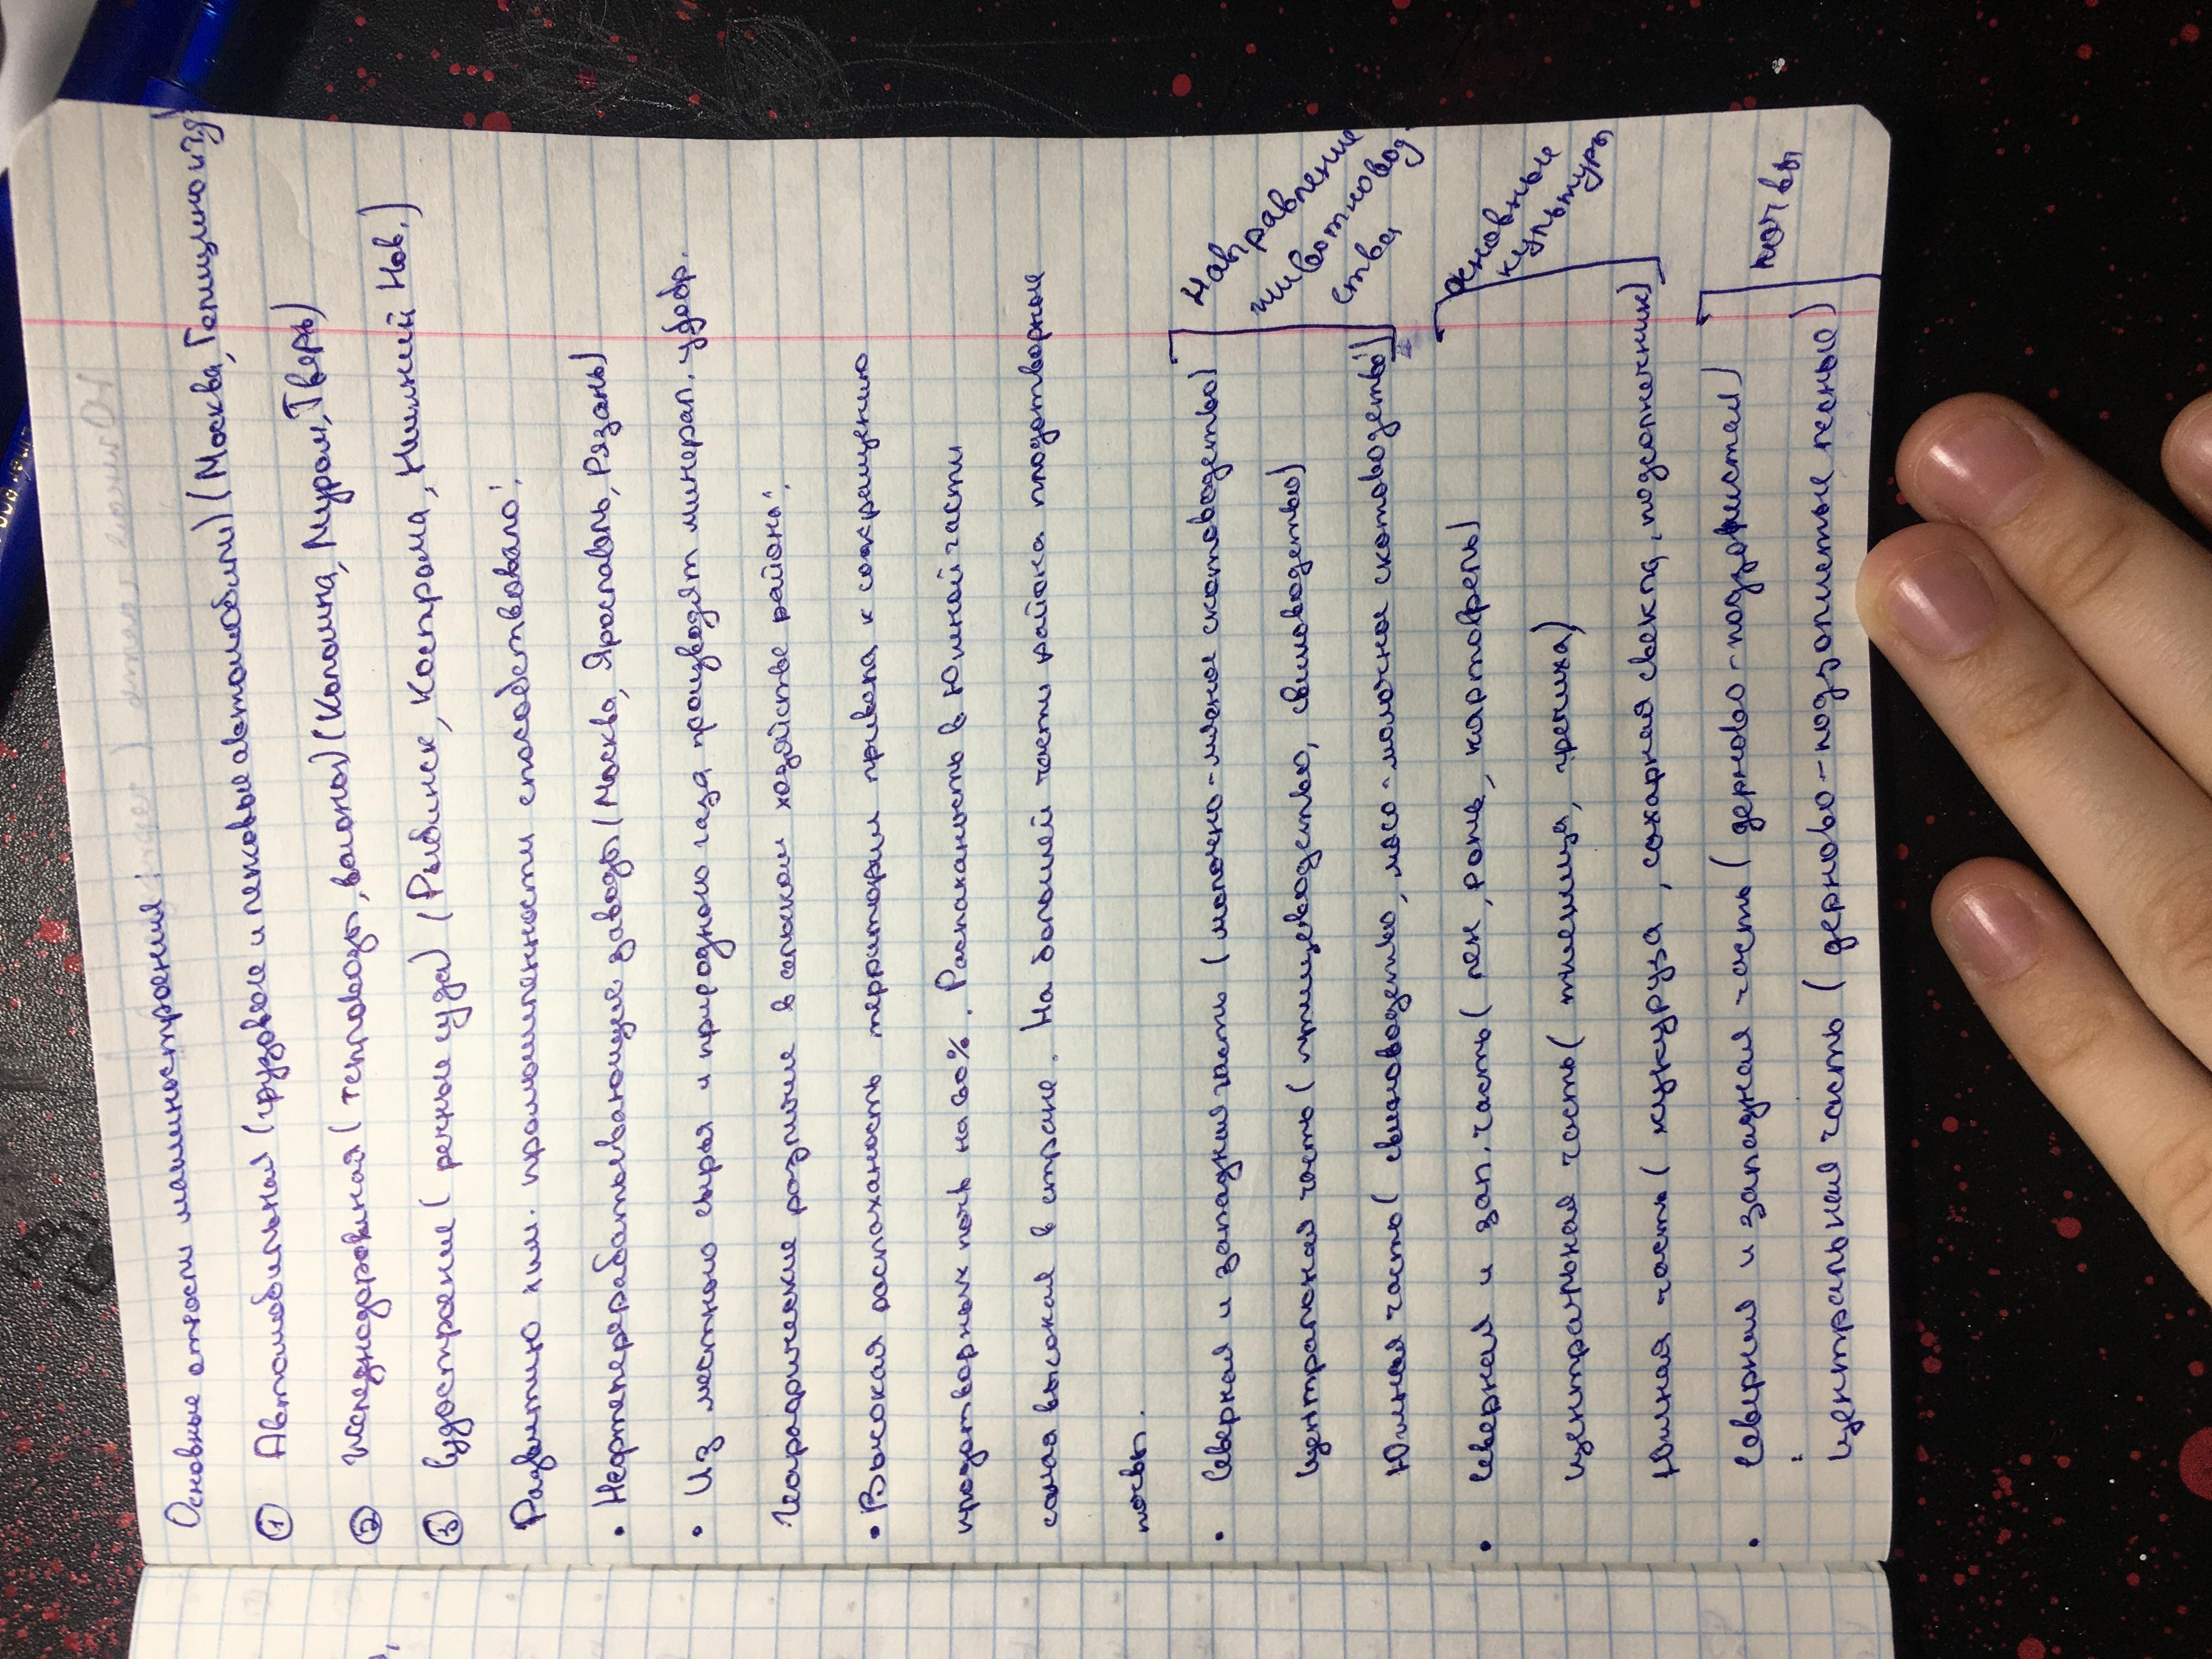 Основные отрасли машиностроения:
① Автомобильная (грузовые и легковые автомобили) (Москва, Голицино и др
② Железнодорожная (тепловозы, вагоны) (Коломна, Муром, Тверь)
③ Судостроение (речные суда) (Рыбинск, Кострома, Нижний Нов.)
Развитию хим. промышленности способствовало:
• Нефтеперерабатывающие заводы (Москва, Ярославль, Рязань)
• Из местного сырья и природного газа производят минерал. удобр.
Географические различие в сельском хозяйстве района:
• Высокая распаханность территории привела к сокращению
плодотворных почв на 60%. Распаханность в Южной части
самая высокая в стране. На большей части района плодотворные
почвы.
• Северная и западная часть (молочно-мясное скотоводство)
Центральная часть (птицеводство, свиноводство)
Южная часть (свиноводство, мясо-молочное скотоводство)
Направление
животновод
ства
• Северная и зап. часть (лен, рожь, картофель)
Центральная часть (пшеница, гречиха)
Южная часть (кукуруза, сахарная свекла, подсолнечник)
основные
культуры
• Северная и западная часть (дерново-подзолистая)
Центральная часть (дерново-подзолистые лесные)
почвы